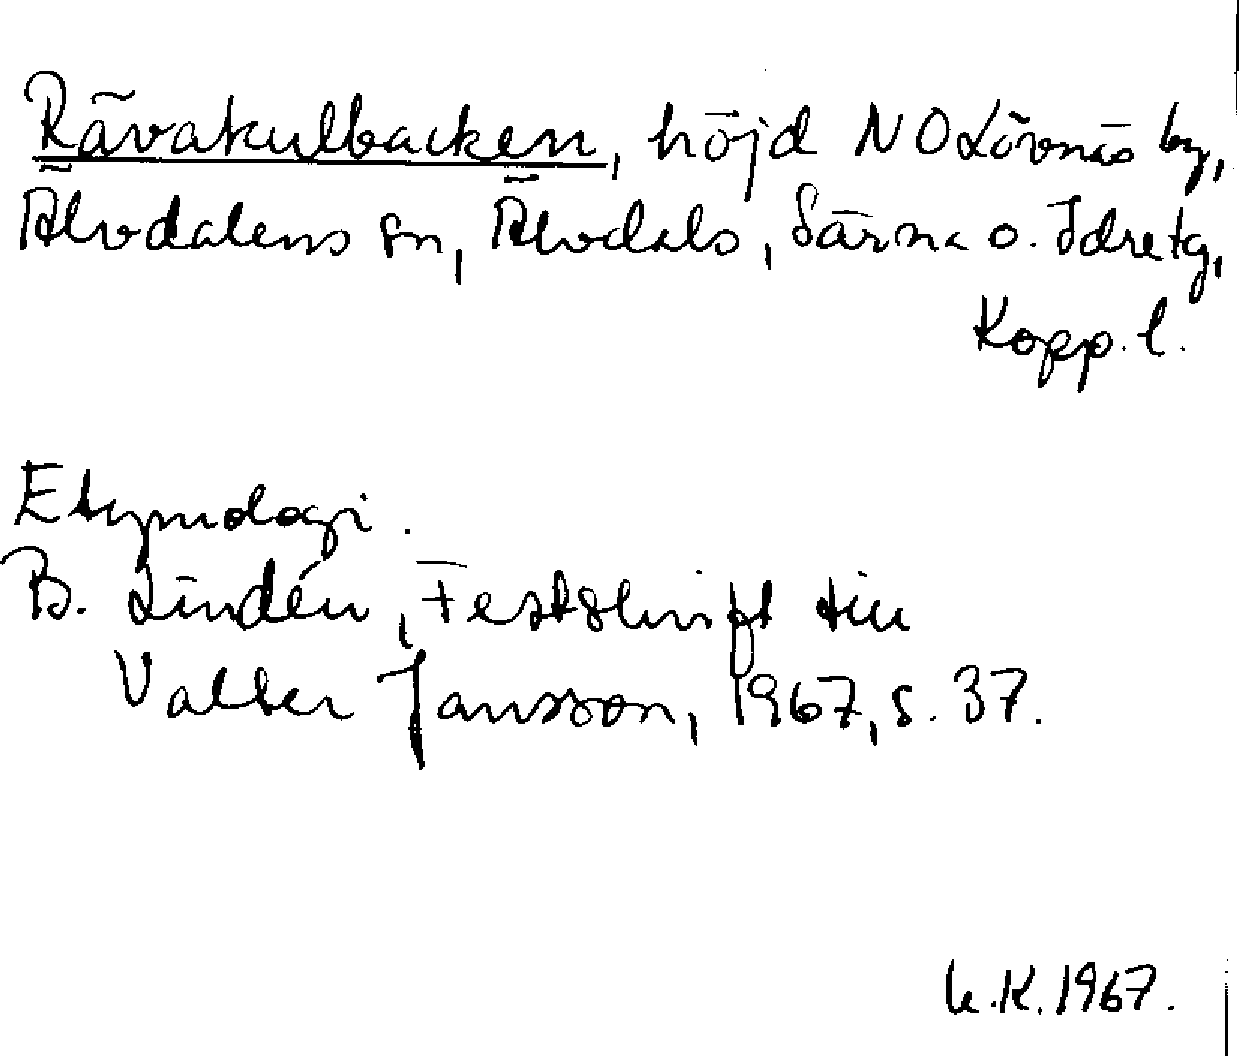 Rävakulbacken, höjd NO Lövnäs by,
Älvdalens sn, Älvdals, Särna o. Idre tg,
Kopp. l.
Etymologi.
B. Lindén, Festskrift till
Valter Jansson, 1967, s. 37.
K. 1967.